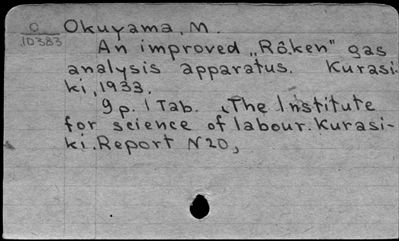 O
10383
Okuyama, M.
An improved „Rôken" gas
analysis apparatus. Kurasi-
ki, 1933.
9 p. 1 Tab. (The Institute
for science of labour. Kurasi-
ki. Report N 20)